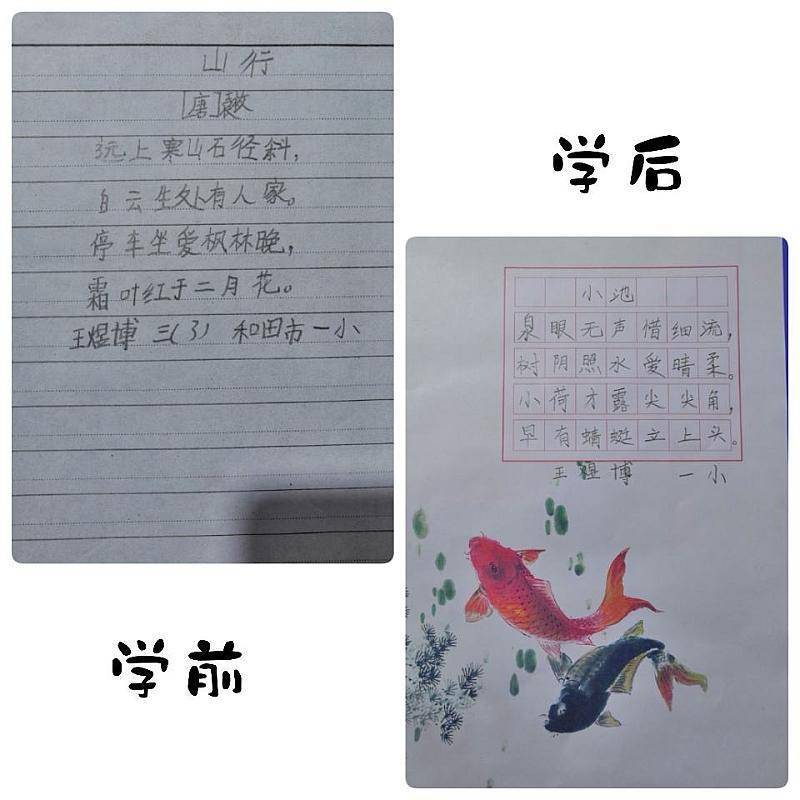 山行
[唐]
远上寒山石径斜,
白云生处有人家。
停车坐爱枫林晚,
霜叶红于二月花。
王煜博 三(3) 和田市一小
学前
学后
小池
泉眼无声借细流,
树阴照水爱晴柔。
小荷才露尖尖角,
早有蜻蜓立上头。
王煜博 一小